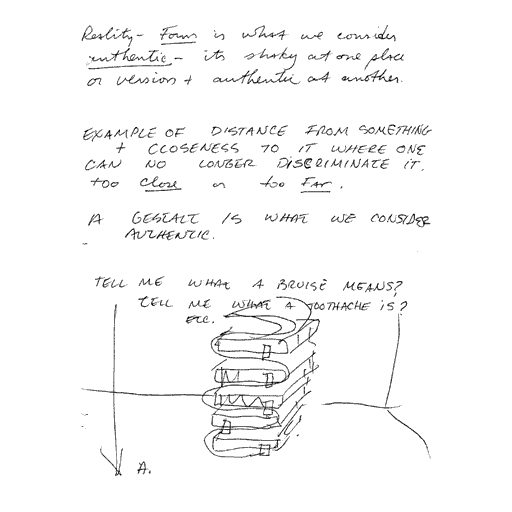 Reality - Form is what we consider
authentic - its shaky at one place
or version + authentic at another.
EXAMPLE OF DISTANCE FROM SOMETHING
+ CLOSENESS TO IT WHERE ONE
CAN NO LONGER DISCRIMINATE IT.
too Close or too Far.
A GESTALT IS WHAT WE CONSIDER
AUTHENTIC.
TELL ME WHAT A BRUISE MEANS?
TELL ME WHAT A TOOTHACHE IS?
ETC.
A.